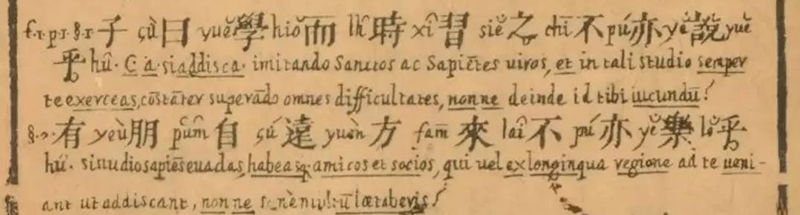 f.1. p.1. §.1. 子 çù 曰 yuĕ 學 hiŏ 而 lh̑ 時 xî 習 siĕ 之 chī 不 pú 亦 yĕ 說 yuĕ
乎 hû. C̄ a. si addisca. imitando Sanctos ac Sapiẽtes uiros, et in tali studio semper
te exerceas, cõstãter superãdo omnes difficultates, nonne deinde id tibi iucundũ?
§. 有 yeù 朋 pûm̃ 自 çú 遠 yuèn 方 fam̄ 來 laî 不 pú 亦 yĕ 樂 lŏ 乎
hû. si studio sapiẽs euadas, habeasq. amicos et socios, qui uel ex longinqua regione ad te ueni-
ant ut addiscant, nonne læraberis?